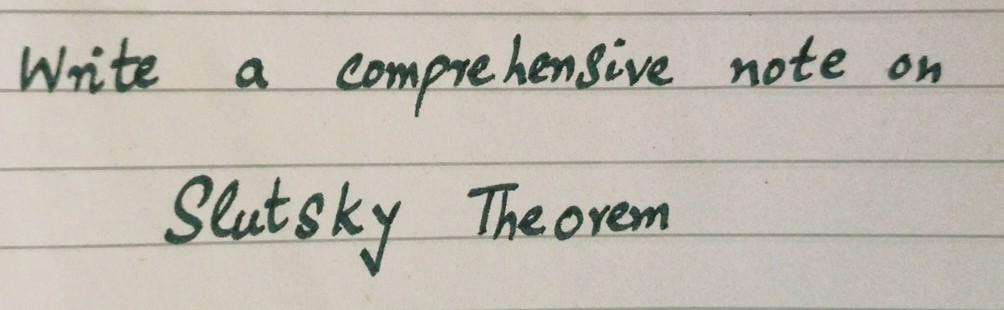 Write a comprehensive note on
Slutsky Theorem